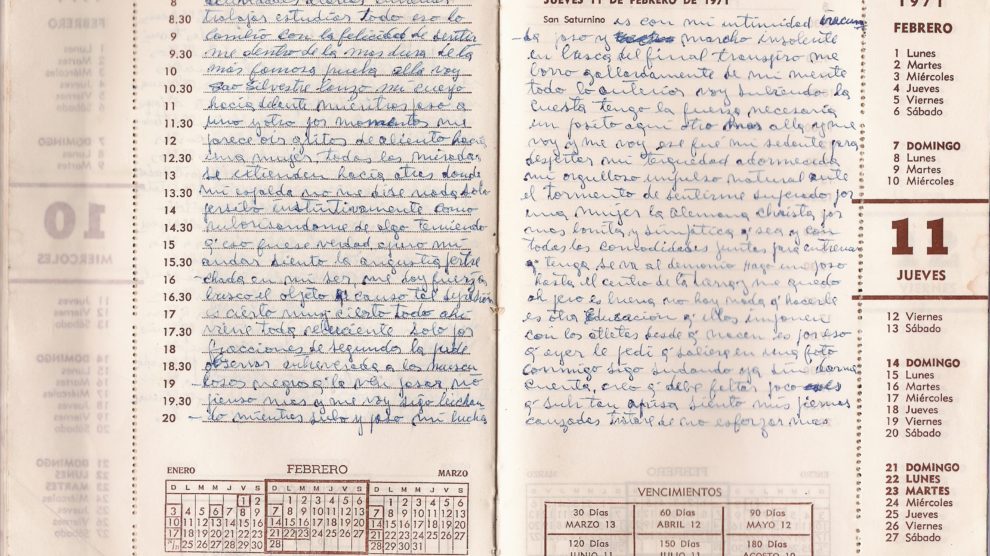 8
8.30 trabajos estudios todo eso lo
9 cambio con la felicidad de sentir
9.30 me dentro de la mas dura de la
10 mas famosa prueba alla voy
10.30 Silvestre lanzo mi cuerpo
11 hacia delante mientras paso a
11.30 uno y otro por momentos me
12 parece oir gritos de aliento hacia
12.30 una mujer todas las miradas
13 se extienden hacia atras donde
13.30 mi espalda no me dise nada solo
14 instintivamente como
14.30 de algo temiendo
15 q' eso fuese verdad apuro mi
15.30 andar siento la angustia
16 chada en mi ser me doy fuerza
16.30 busco el objeto q' causo tal
17 es cierto muy cierto todo ahi
17.30 viene toda reluciente solo por
18 fracciones de segundos la pude
18.30 observar
19 negros q' la ven pasar no
19.30 pienso mas y me voy sigo luchan
20 do mientras subo y paso mi lucha
ENERO FEBRERO MARZO
D L M M J V S
1 2
3 4 5 6 7 8 9
10 11 12 13 14 15 16
17 18 19 20 21 22 23
24/31 25 26 27 28 29 30
D L M M J V S
1 2 3 4 5 6
7 8 9 10 11 12 13
14 15 16 17 18 19 20
21 22 23 24 25 26 27
28
D L M M J V S
1 2 3 4 5 6
7 8 9 10 11 12 13
14 15 16 17 18 19 20
21 22 23 24 25 26 27
28
JUEVES 11 DE FEBRERO DE 1971
San Saturnino es con mi intimidad
la paso y marcho insolente
en busca del final transpiro me
borro gallardamente de mi mente
todo lo anterior voy subiendo la
cuesta tengo la fuerza necesaria
un pasito aqui otro mas alla y me
voy y me voy ese fue mi sedante para
despertar mi terquedad adormecida
mi orgulloso impulso natural ante
el tormento de sentirme superado por
una mujer la alemana Christa por
mas bonita y simpatica q' sea y con
todas las comodidades juntas para entrenar
q' tenga se va al demonio hago un poso
hasta el centro de la tierra y me quedo
ah pero es buena no hay nada q' hacerle
es otra educacion q' ellos imponen
con los atletas desde q' nacen es por eso
q' ayer le pedi q' saliera en una foto
conmigo sigo sudando ya sin darme
cuenta creo q' debe faltar poco
q' subi tan aprisa siento mis piernas
cansadas tratare de no esforzar mas
VENCIMIENTOS
30 Días 60 Días 90 Días
MARZO 13 ABRIL 12 MAYO 12
120 Días 150 Días 180 Días
JUNIO 11 JULIO 11 AGOSTO 10
1971
FEBRERO
1 Lunes
2 Martes
3 Miércoles
4 Jueves
5 Viernes
6 Sábado
7 DOMINGO
8 Lunes
9 Martes
10 Miércoles
11
JUEVES
12 Viernes
13 Sábado
14 DOMINGO
15 Lunes
16 Martes
17 Miércoles
18 Jueves
19 Viernes
20 Sábado
21 DOMINGO
22 LUNES
23 MARTES
24 Miércoles
25 Jueves
26 Viernes
27 Sábado